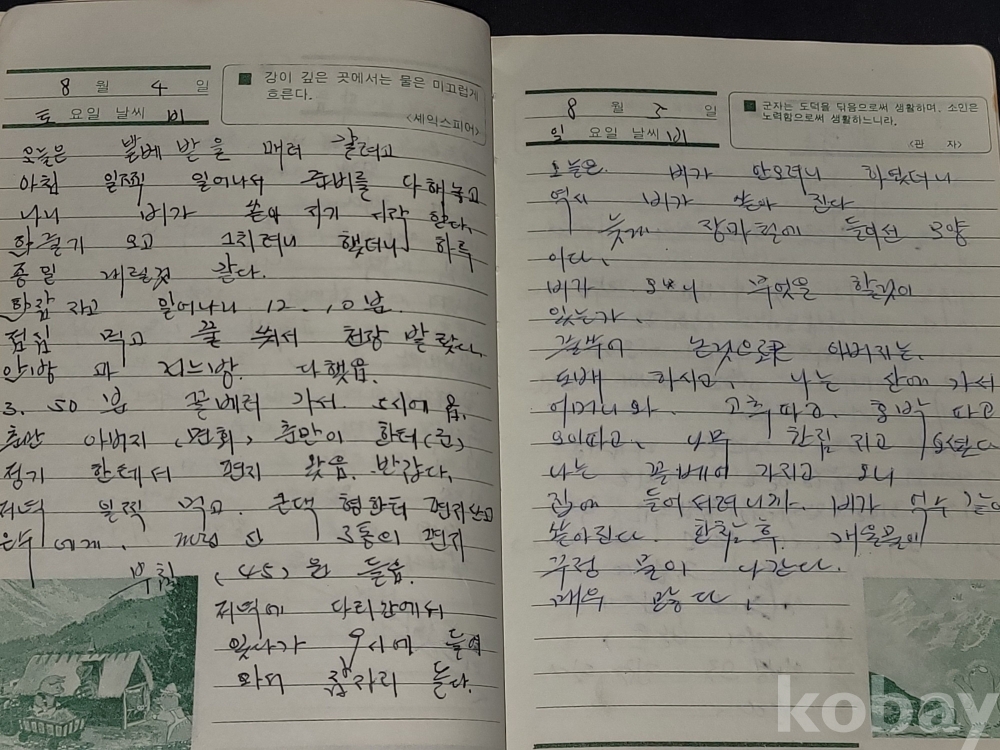 8 월 4 일
토 요일 날씨 비
강이 깊은 곳에서는 물은 미끄럽게
흐른다.
<세익스피어>
오늘은 밭을 매러 갈려고
아침 일찍 일어나서 준비를 다 해놓고
나니 비가 쏟아 지기 시작 한다.
한 줄기 오고 그치려니 했더니 하루
종일 내릴것 같다.
한잠 자고 일어나니 12. 10분.
점심 먹고 풀 쒀서 천장 발랐다.
안방 과 다했음.
3. 50분 꼴베러 가서 5시에 옴.
아버지 (면회)
한테서 편지 왔음. 반갑다.
저녁 일찍 먹고. 큰댁 형한터 편지
에게. 3통의 편지
부침 (45) 원 들음.
저녁에 다리간에서
있다가 9시에 들어
와서 잠자리 든다.
8 월 5 일
일 요일 날씨 비
군자는 도덕을 닦음으로써 생활하며, 소인은
노력함으로써 생활하느니라.
<관 자>
오늘은 비가 안오려니 하였더니
역시 비가 쏟아 진다
늦게 장마철에 들어선 모양
이다.
비가 오니 무엇을 할것이
있는가.
아버지는.
도배 하시고, 나는 산에 가서
어머니와. 고추따고. 호박 따고
오이따고. 나무 한짐 지고 오셨다
나는 꼴베어 가지고 오니
집에 들어서려니까. 비가 억수
쏟아진다. 한참 후. 개울물이
꾸정 물이 나간다.
매우 많다.
kobay